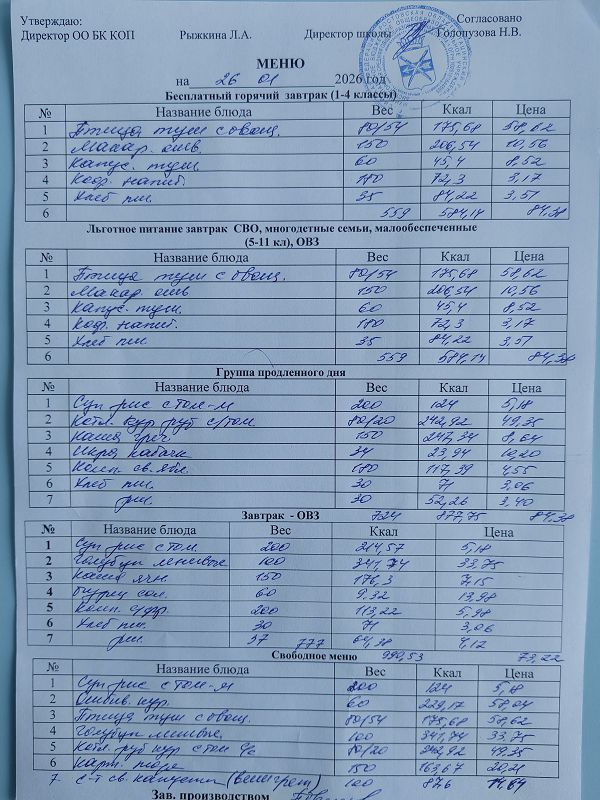 Утверждаю: Согласовано
Директор ОО БК КОП Рыжкина Л.А. Директор школы Голопузова Н.В.
МЕНЮ
на 26 01 2026 год
Бесплатный горячий завтрак (1-4 классы)
№ Название блюда Вес Ккал Цена
1 Птица туш с овощ. 80/54 175,68 58,62
2 Макар. отв. 150 206,54 10,56
3 Капус. туш. 60 45,4 8,52
4 Коф. напит. 180 72,3 3,17
5 Хлеб пш. 35 84,22 3,51
6 559 584,14 84,38
Льготное питание завтрак СВО, многодетные семьи, малообеспеченные
(5-11 кл), ОВЗ
№ Название блюда Вес Ккал Цена
1 Птица туш с овощ. 80/54 175,68 58,62
2 Макар. отв 150 206,54 10,56
3 Капус. туш. 60 45,4 8,52
4 Коф. напит. 180 72,3 3,17
5 Хлеб пш 35 84,22 3,51
6 559 584,14 84,38
Группа продленного дня
№ Название блюда Вес Ккал Цена
1 Суп рис с том-м 200 124 5,18
2 Котл. кур руб с/том 80/20 242,92 49,35
3 Каша греч 150 247,34 8,64
4 Икра кабачк 34 23,94 10,20
5 Комп. св. ябл. 180 117,39 4,55
6 Хлеб пш 30 71 3,06
7 рж. 30 52,26 3,40
Завтрак - ОВЗ 724 877,75 84,38
№ Название блюда Вес Ккал Цена
1 Суп рис с том. 200 214,57 5,18
2 Голубцы ленивые 100 341,74 33,75
3 Каша ячн. 150 176,3 7,15
4 Огурец сол. 60 9,32 13,98
5 Комп. с/фр. 200 113,22 5,98
6 Хлеб пш 30 71 3,06
7 рж. 37 777 64,38 4,12
Свободное меню 990,53 73,22
№ Название блюда Вес Ккал Цена
1 Суп рис с том-м 200 124 5,18
2 Отбив. кур. 60 229,17 58,04
3 Птица туш с овощ. 80/54 175,68 58,62
4 Голубцы ленивые 100 341,74 33,75
5 Котл. руб кур с том 80/20 242,92 49,35
6 Карт. пюре 150 163,67 20,21
7. с-т св. капусты (Венигрет) 100 87,6
Зав. производством